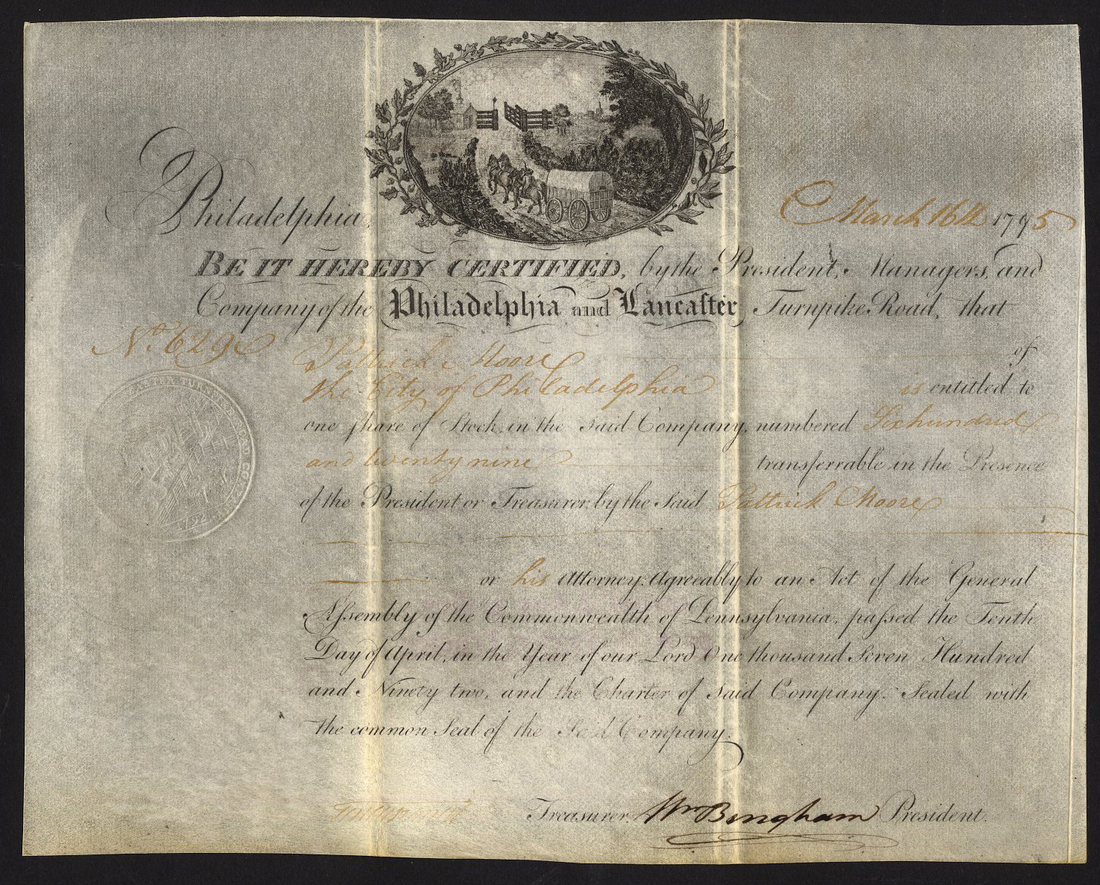 Philadelphia, March 16th 1795
BE IT HEREBY CERTIFIED, by the President, Managers, and
Company of the Philadelphia and Lancaster Turnpike Road, that
No. 629 Pattrick Moore of
the City of Philadelphia is entitled to
one share of Stock, in the said Company, numbered Six hundred
and twenty nine transferrable in the Presence
of the President or Treasurer by the Said Pattrick Moore
or his Attorney, Agreeably to an Act of the General
Assembly of the Commonwealth of Pennsylvania, passed the Tenth
Day of April, in the Year of our Lord One thousand Seven Hundred
and Ninety two, and the Charter of said Company. Sealed with
the common Seal of the Said Company.
Treasurer. Wm Bingham President.